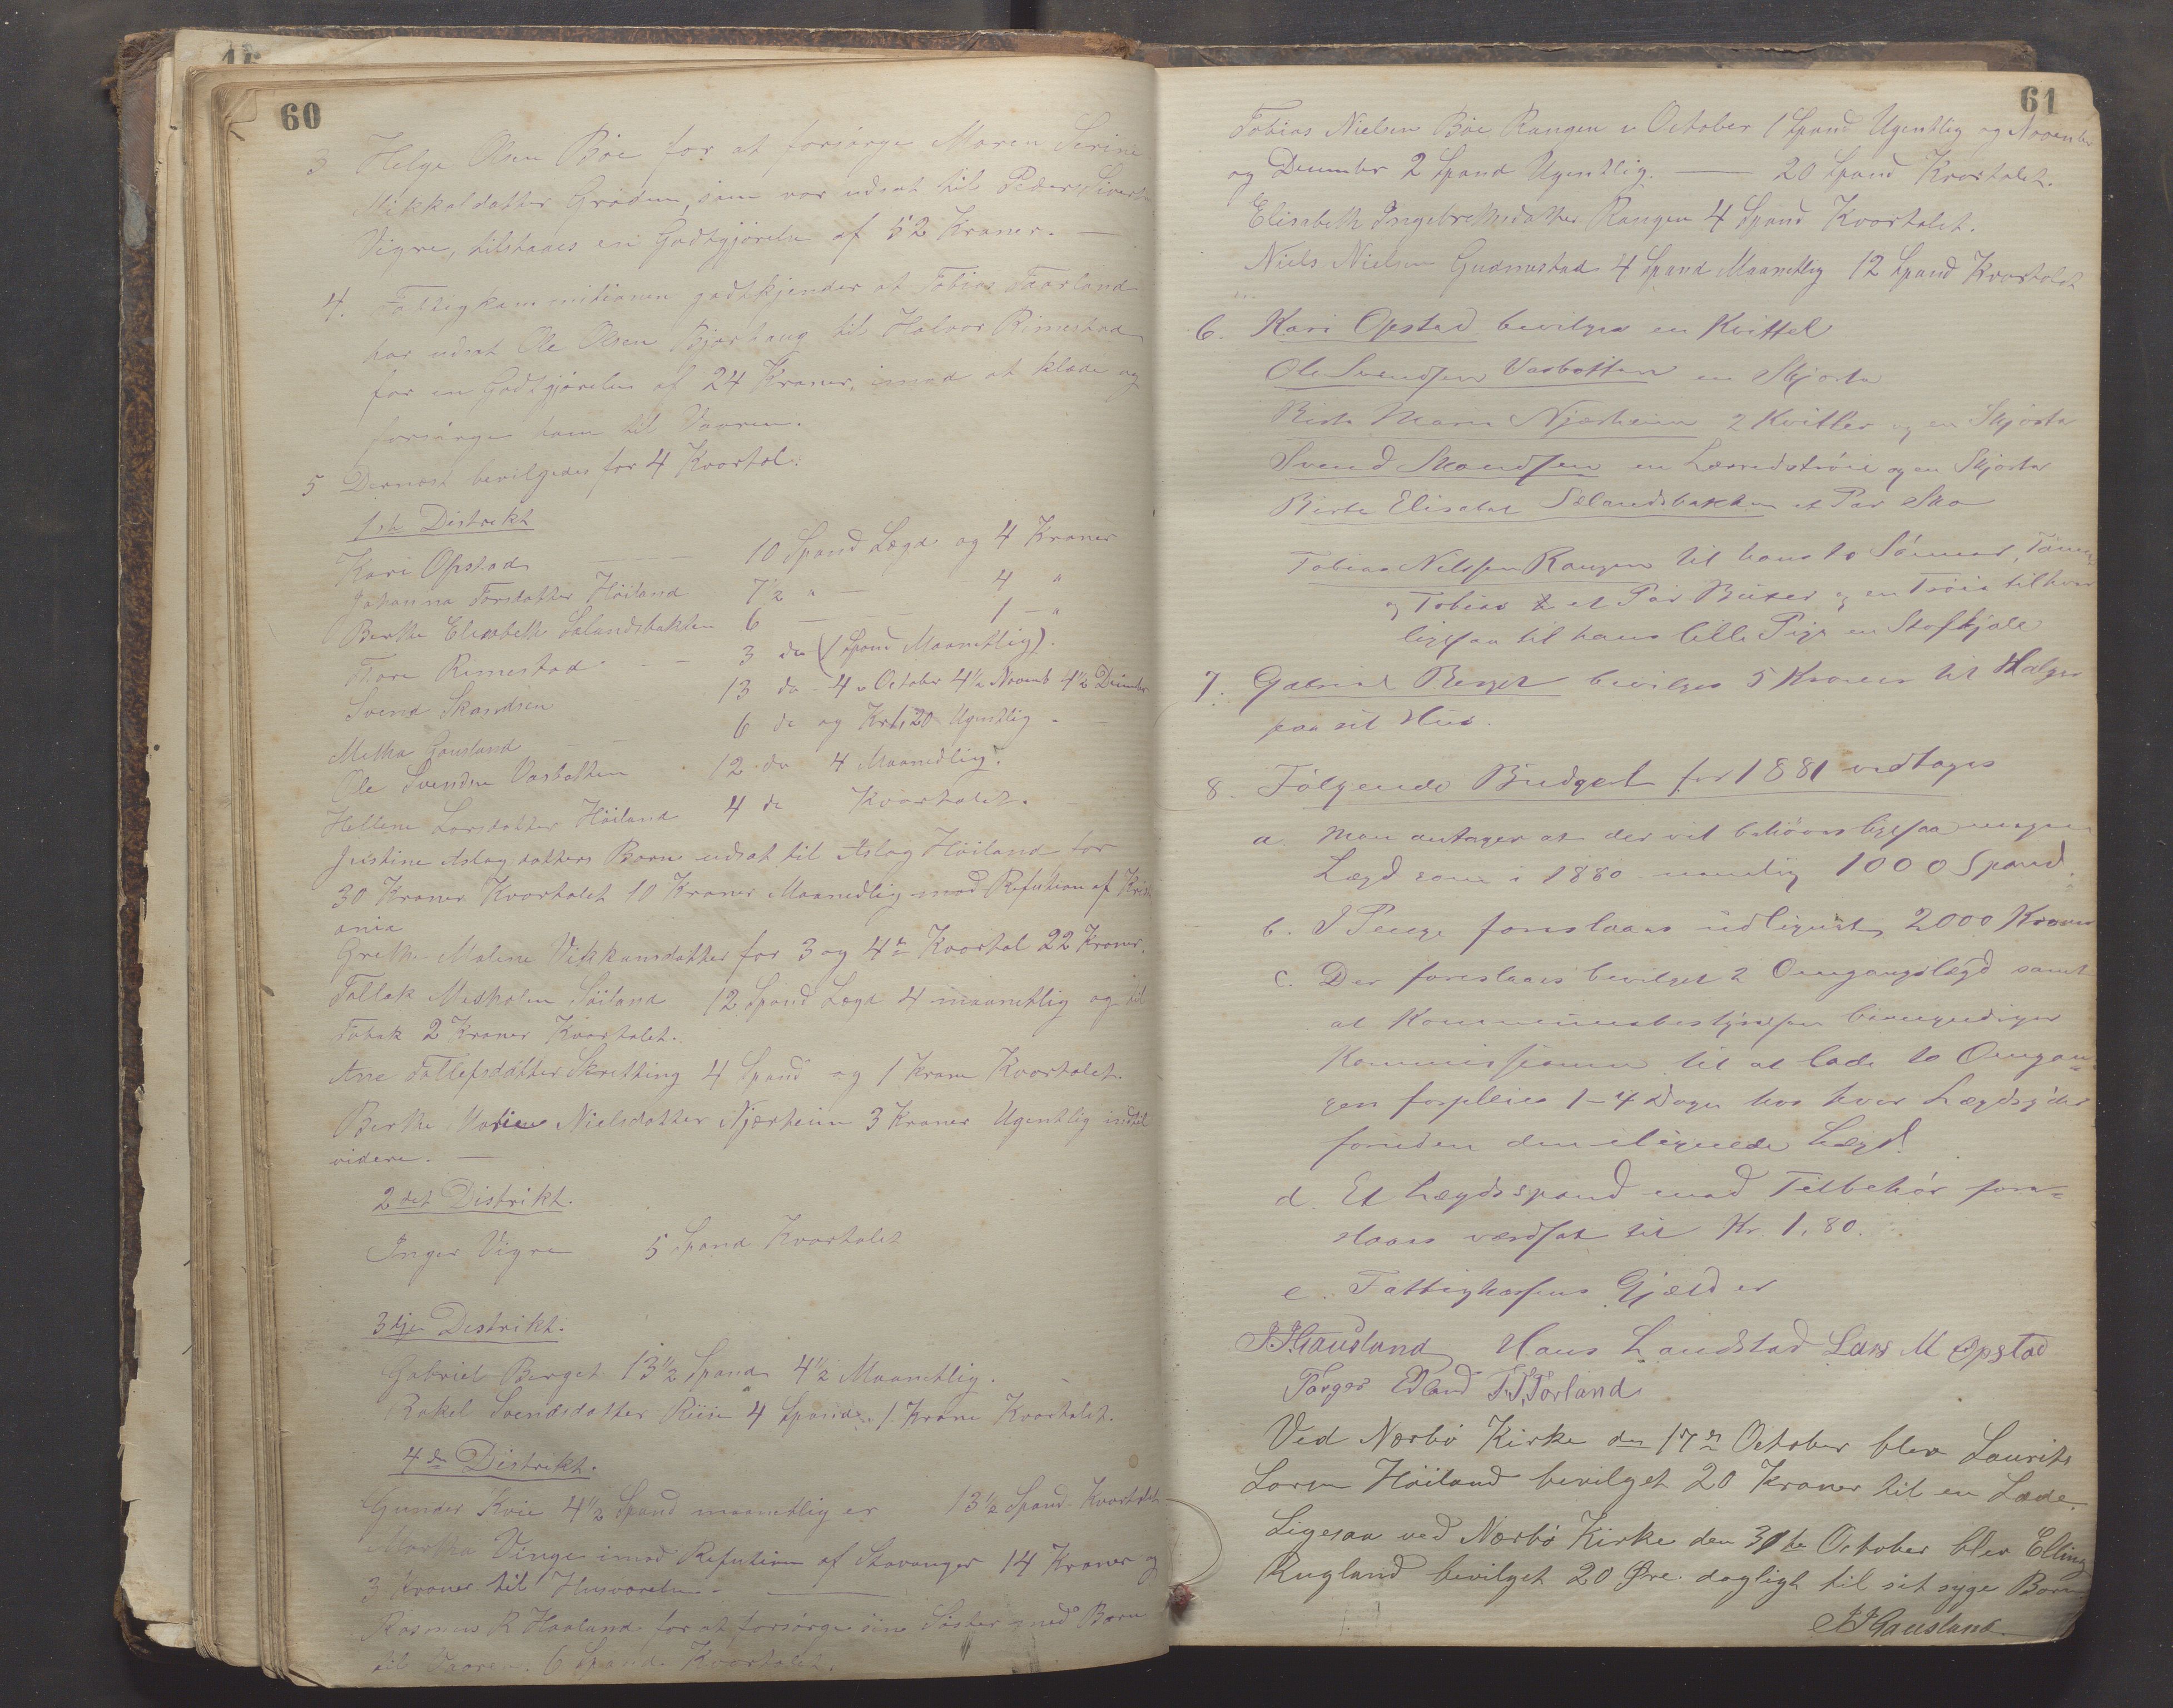 60
3 Helge Olsen Böe for at forsörge Maren Serine
Mikkaldatter Grødem, som var udsat til Peder Sivert
Vigre, tilstaaes en Godtgjörelse af 52 Kroner. —
4. Fattigkommitionen godtkjender at Tobias Taarland
har udsat Ole Olsen Bjorhaug til Halvor Rimestad
for en Godtgjörelse af 24 Kroner, imod at klæde og
forsörge ham til Vaaren.
5 Dernæst bevilgedes for 4 Kvartal:
1ste Distrikt
Kari Opstad — 10 Spand Lægd og 4 Kroner
Johanna Torsdatter Höiland 7½ " — 4 "
Berthe Elisabeth Sælandsbakken 6 — 1 — "
Tore Rimestad — 3 do (1 Spand Maanetlig).
Svend Skandsen 13 do - 4 i October 4½ Novemb 4½ Decimber
Metha Gausland 6 do og Kr 1,20 Ugentlig -
Ole Svendsen Vasbotten 12 do 4 Maanedlig.
Hellene Larsdatter Höiland 4 do Kvartalet.
Justine Aslagdatters Barn udsat til Aslag Höiland for
30 Kroner Kvartalet 10 Kroner Maanedlig mod Refution af Krist
ania
Grethe Malene Vikkansdatter for 3 og 4de Kvartal 22 Kroner.
Tollak Söiland 12 Spand Lægd 4 maanetlig og til
Tobak 2 Kroner Kvartalet.
Ane Tollefsdatter Skretting 4 Spand og 1 Krone Kvartalet.
Berthe Marie Nielsdatter Njærheim 3 Kroner Ugentlig indtil
videre. —
2det Distrikt.
Inger Vigre 5 Spand Kvartalet
3dje Distrikt.
Gabriel Berget 13½ Spand 4½ Maanetlig.
Rakel Svendsdatter Riise 4 Spand. 1 Krone Kvartalet.
4de Distrikt.
Gunder Kvie 4½ Spand maanetlig er 13½ Spand Kvartalet
Martha Vinge imod Refution af Stavanger 14 Kroner og
3 Kroner til Husværelse. —
Rasmus R Haaland for at forsörge sin Söster med Barn
til Vaaren. 6 Spand. Kvartalet.
61
Tobias Nielsen Böe Rangen i October 1 Spand Ugentlig og November
og Decimber 2 Spand Ugentlig. — 20 Spand Kvartalet.
Elisabeth Ingebrethsdatter Rangen 4 Spand Kvartalet.
Niels Nielsen Gudmestad 4 Spand Maanetlig 12 Spand Kvartalet
6. Kari Opstad bevilges en Kvittel
Ole Svendsen Vasbotten en Skjorte
Birte Marie Njærheim 2 Kvitler og en Skjorte
Svend Skandsen en Lærredströie og en Skjorte
Birte Elisabet Sælandsbakken et Par Sko
Tobias Nilssen Rangen til hans to Sönner,
og Tobias et Par Buxer og en Tröie til hver
ligesaa til hans lille Pige en Stofkjole
7. Gabriel Berget bevilges 5 Kroner til Halger
paa sit Hus.
8. Fölgende Budget for 1881 vedtoges
a. Man antager at der vil behöves ligesaa megen
Lægd som i 1880 nemlig 1000 Spand.
b. I Penge foreslaaes udlignet 2000 Kroner
c. Der foreslaaes bevilget 2 Omgangslægd samt
at Kommunebestyrelsen bemyndiger
Kommissionen til at lade to Omgan=
gen forpleies 1-4 Dage hos hver Lægdsyder
foruden den ilignede Lægd.
d. Et Lægdsspand med Tilbehör fore=
slaaes værdsat til Kr 1,80.
e. Fattigkassens Gjæld er
J. J. Gausland Hans Laudstad Lars M Opstad
Torger Edland T. T. Torland
Ved Nærbö Kirke den 17de October blev Laurits
Larsen Höiland bevilget 20 Kroner til en Lade.
Ligesaa ved Nærbö Kirke den 31te October blev Elling
Kugland bevilget 20 Øre dagligh til sit syge Barn
J J Gausland